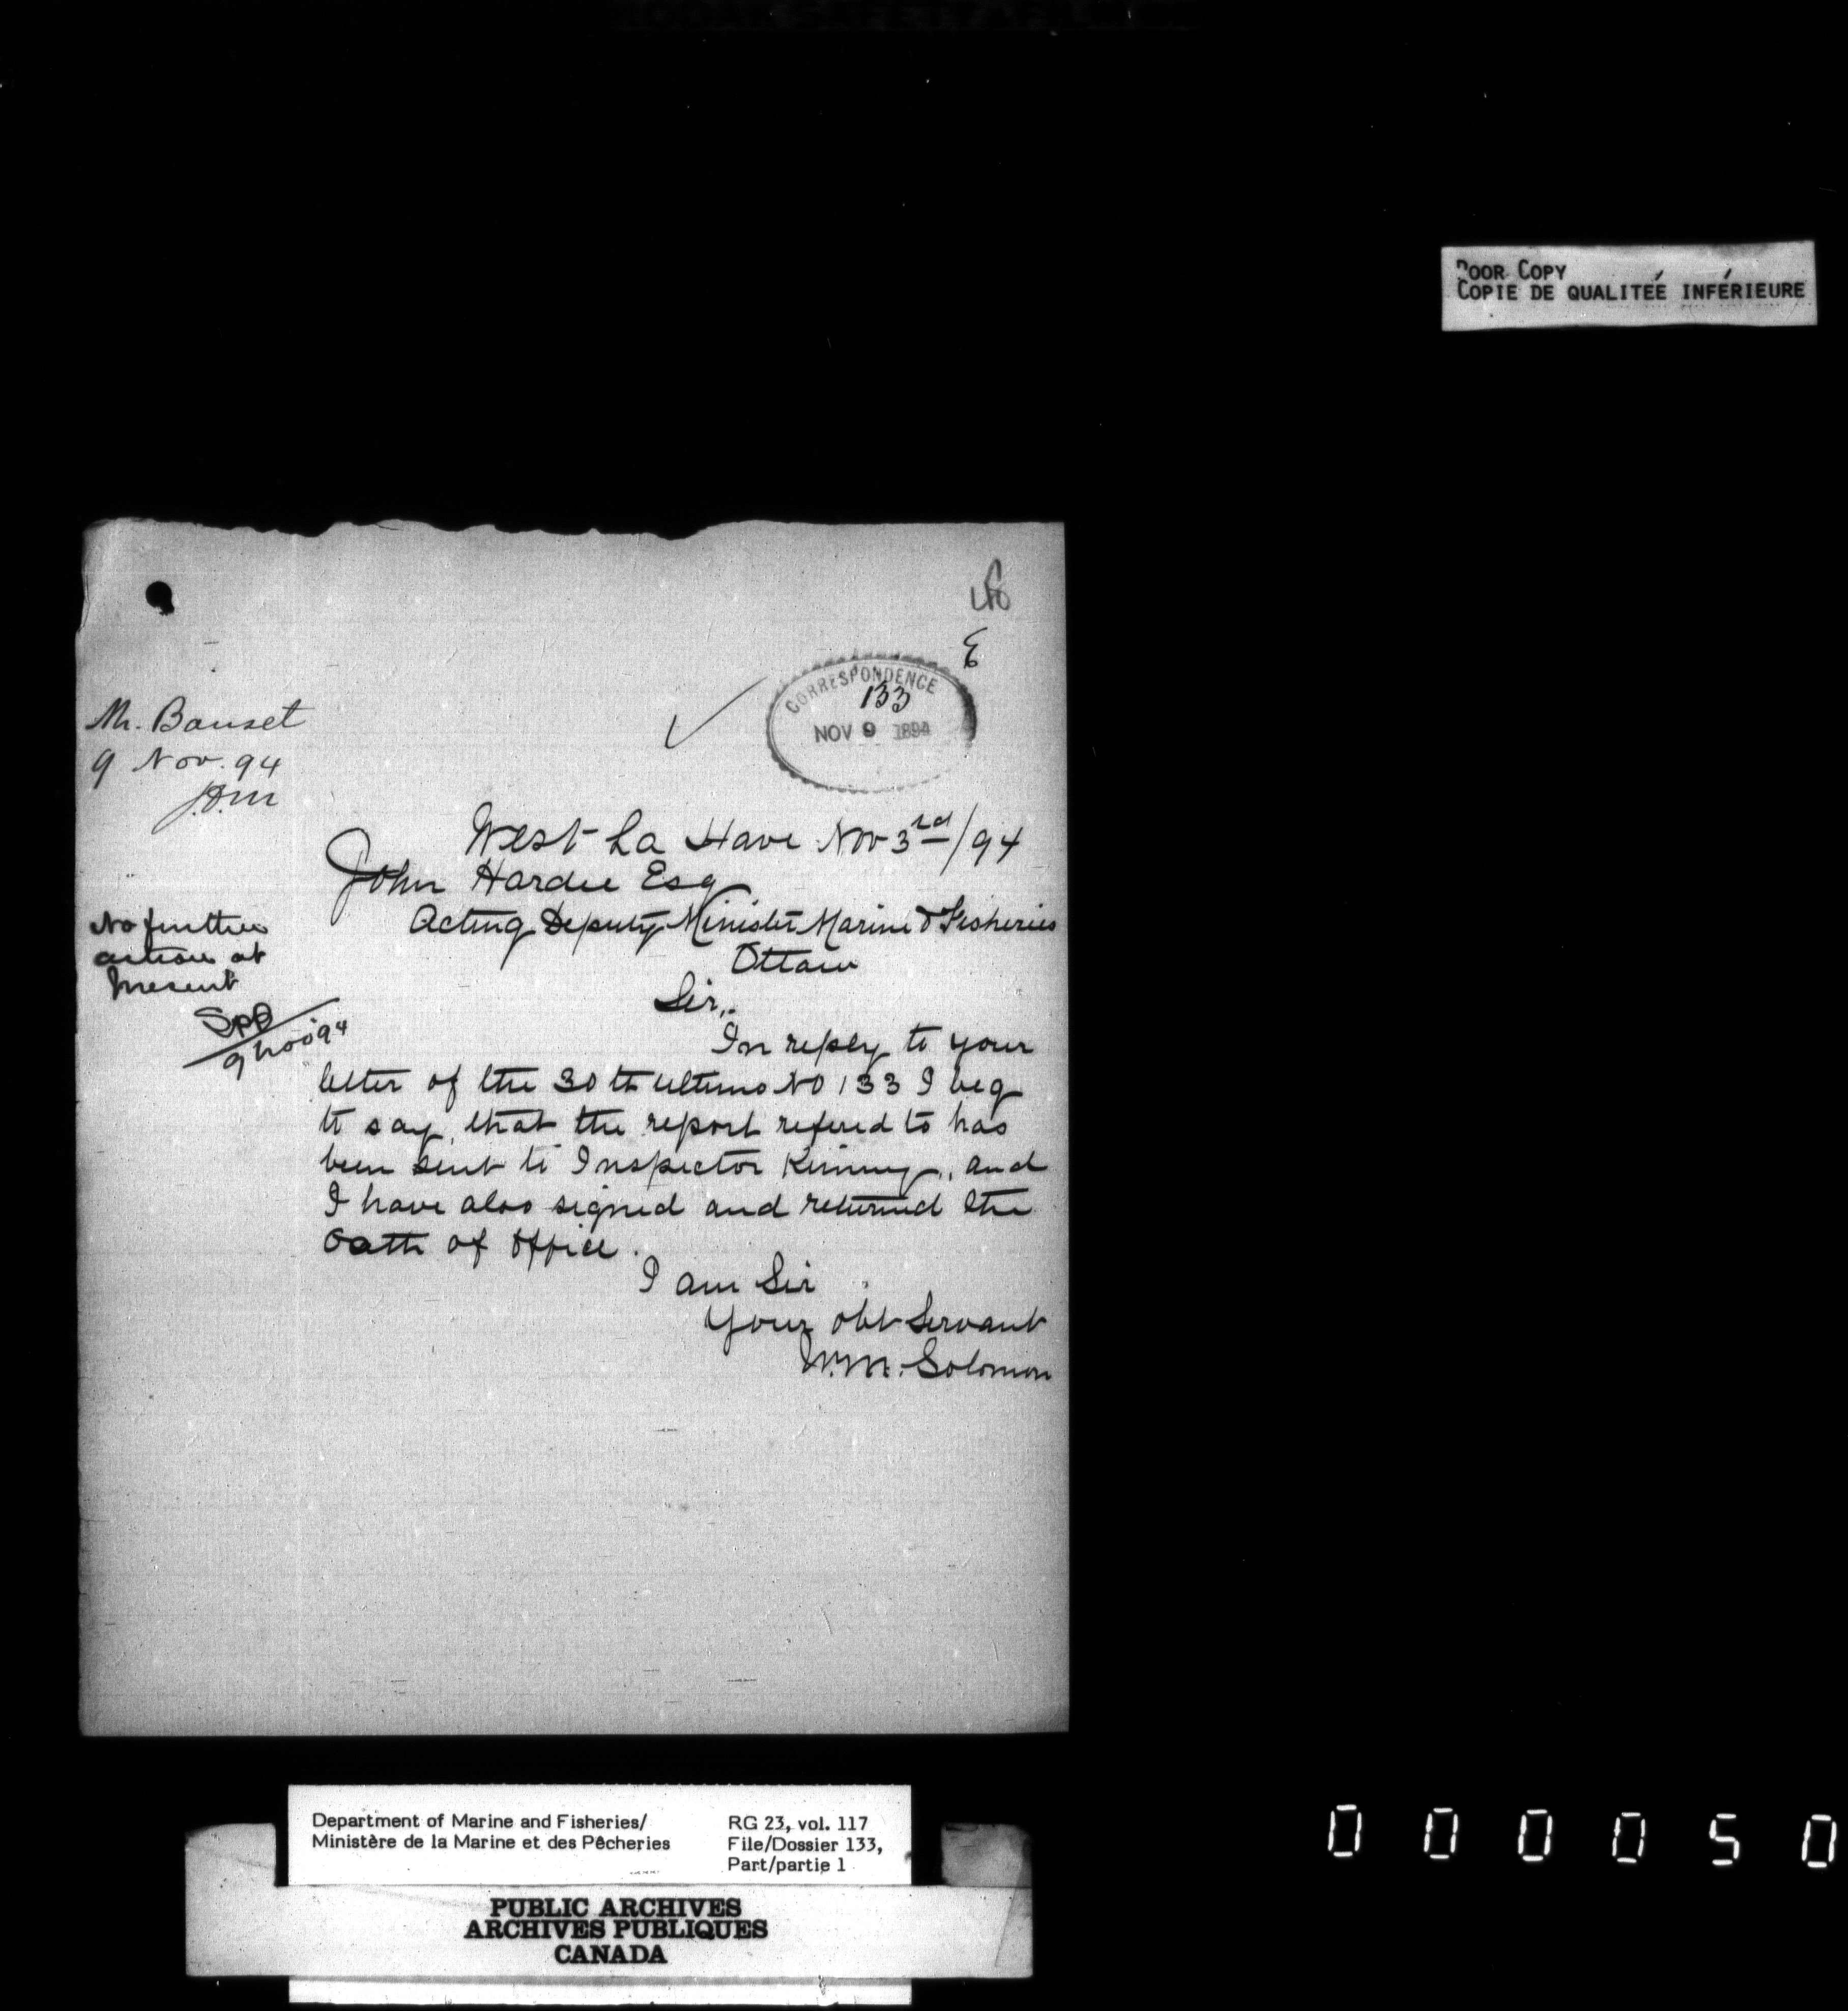 POOR COPY
COPIE DE QUALITEÉ INFÉRIEURE
CORRESPONDENCE
133
NOV 9 1894
Mr. Bauset
9 Nov. 94
West La Have Nov 3rd/94
John Hardie Esq
Acting Deputy Minister Marine & Fisheries
Ottawa
No further
action at
present
9 Nov 94
Sir,
In reply to your
letter of the 30th ultimo No 133 I beg
to say, that the report refered to has
been sent to Inspector Kinney, and
I have also signed and returned the
Oath of Office.
I am Sir
Your obt Servant
W.M. Solomon
Department of Marine and Fisheries/
Ministère de la Marine et des Pêcheries
RG 23, vol. 117
File/Dossier 133,
Part/partie 1
PUBLIC ARCHIVES
ARCHIVES PUBLIQUES
CANADA
000050